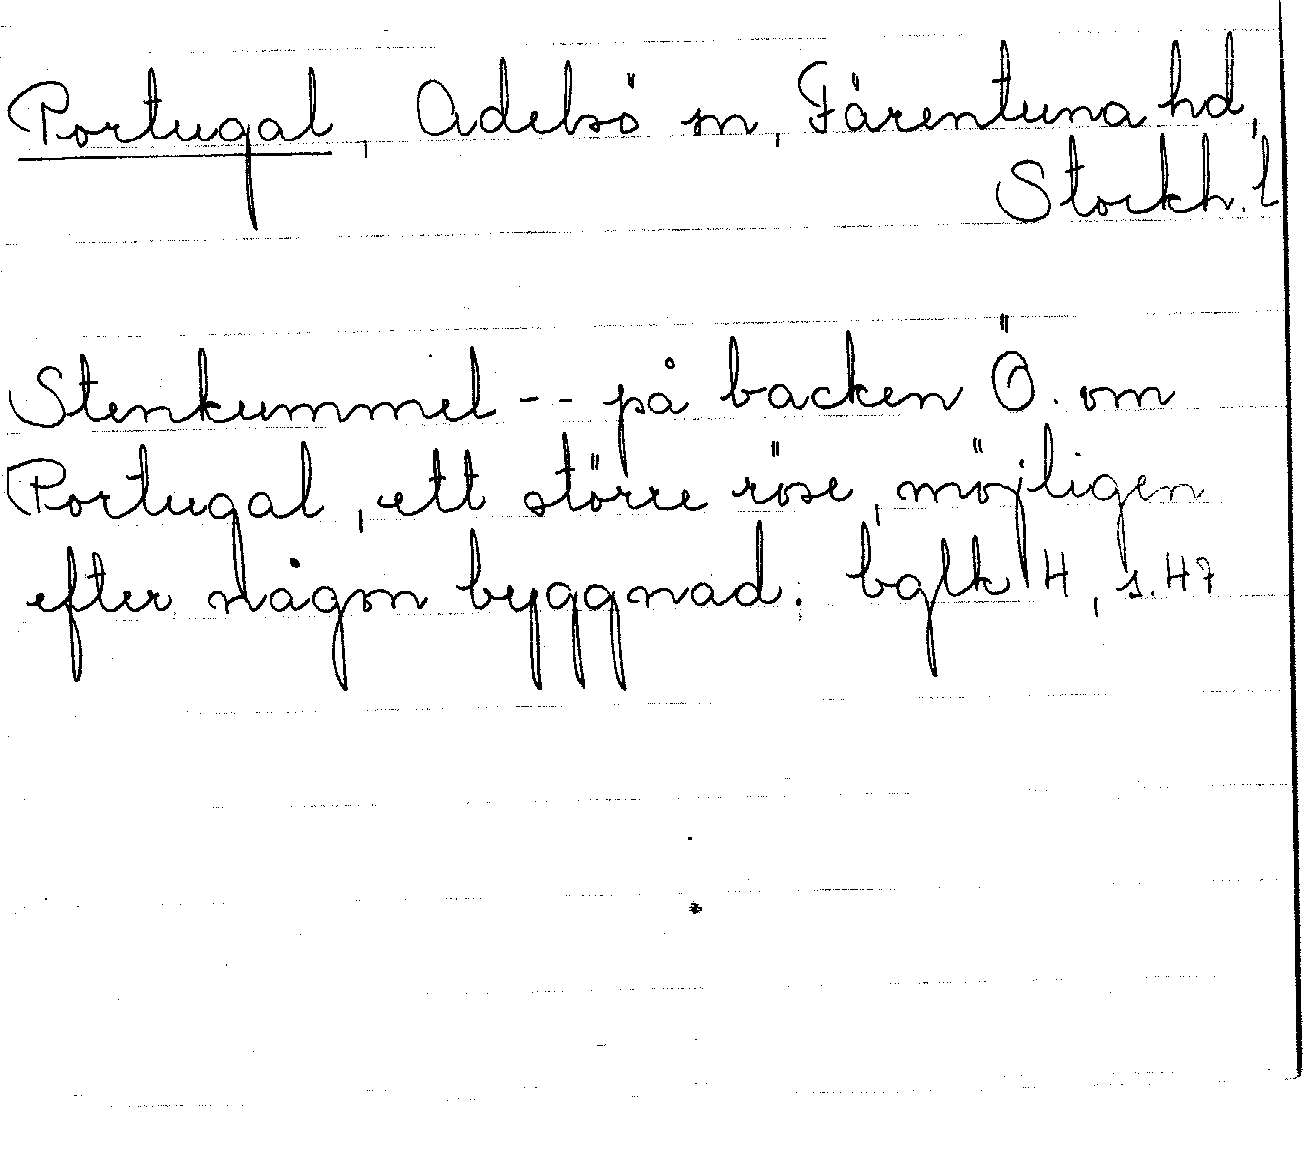 Portugal, Adelsö sn, Färentuna hd,
Stockh. l
Stenkummel -- på backen Ö. om
Portugal, ett större röse, möjligen
efter någon byggnad. bglk 4, s. 47